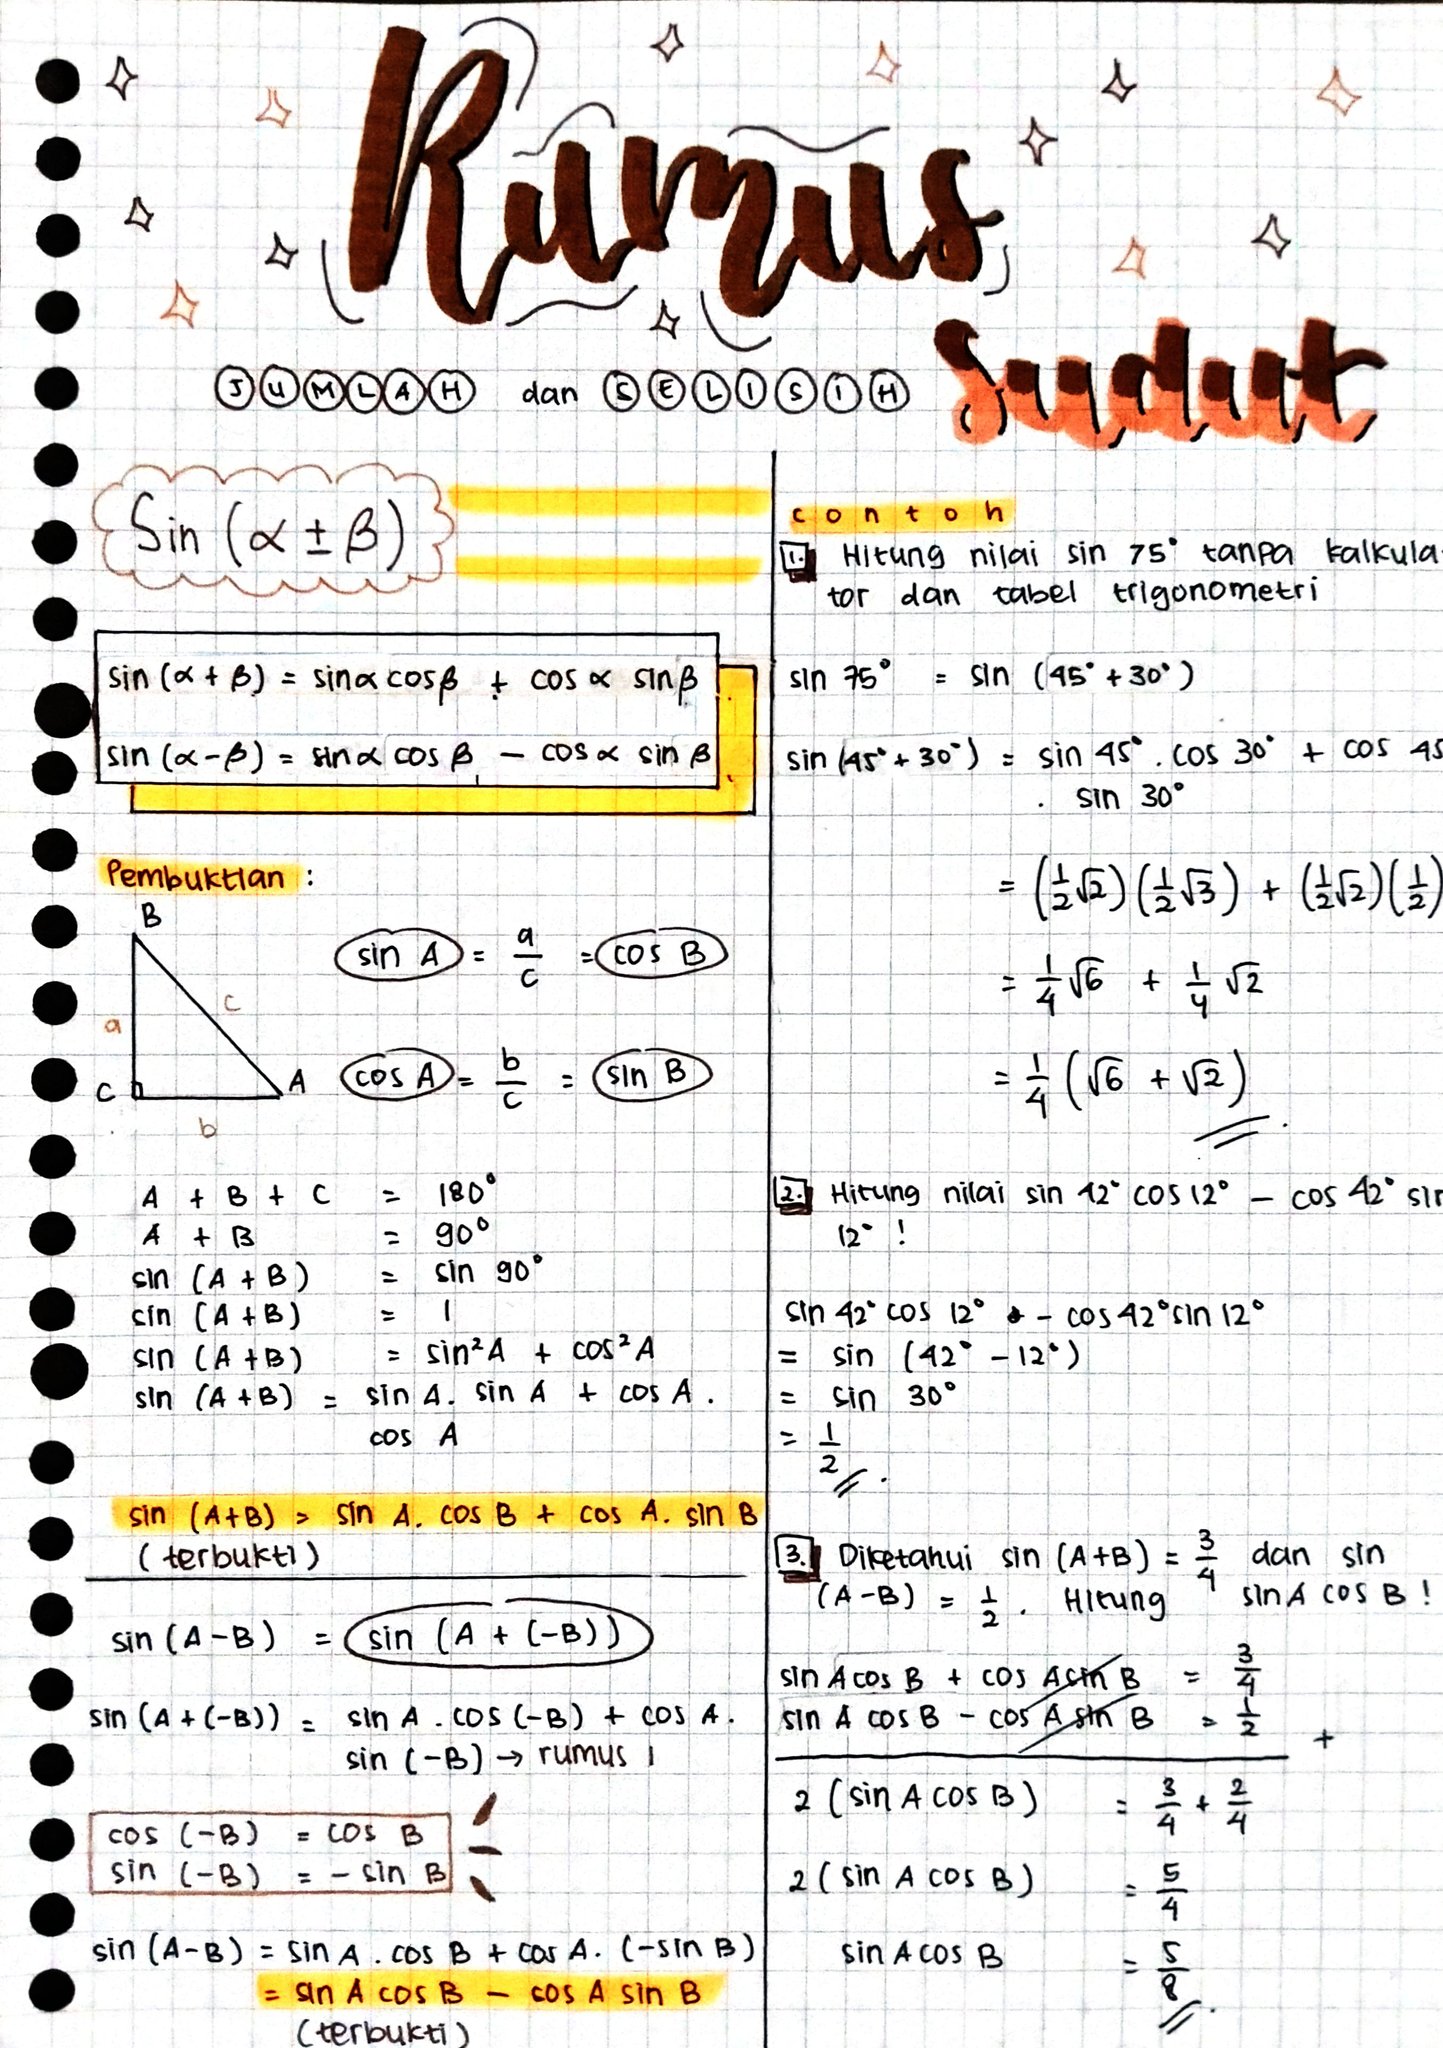 Rumus
JUMLAH dan SELISIH Sudut
Sin (α ± β)
sin (α + β) = sin α cos β + cos α sin β
sin (α - β) = sin α cos β - cos α sin β
Pembuktian :
B
a
c
C
A
b
sin A = a/c = cos B
cos A = b/c = sin B
A + B + C = 180°
A + B = 90°
sin (A + B) = sin 90°
sin (A + B) = 1
sin (A + B) = sin²A + cos²A
sin (A + B) = sin A. sin A + cos A.
cos A
sin (A+B) = sin A. cos B + cos A. sin B
(terbukti)
sin (A - B) = sin (A + (-B))
sin (A + (-B)) = sin A . cos (-B) + cos A.
sin (-B) → rumus 1
cos (-B) = cos B
sin (-B) = - sin B
sin (A - B) = sin A . cos B + cos A. (-sin B)
= sin A cos B - cos A sin B
(terbukti)
contoh
1. Hitung nilai sin 75° tanpa kalkula-
tor dan tabel trigonometri
sin 75° = sin (45° + 30°)
sin (45° + 30°) = sin 45° . cos 30° + cos 45
. sin 30°
= (1/2 √2) (1/2 √3) + (1/2 √2) (1/2)
= 1/4 √6 + 1/4 √2
= 1/4 (√6 + √2)
2. Hitung nilai sin 42° cos 12° - cos 42° sin
12° !
sin 42° cos 12° - cos 42° sin 12°
= sin (42° - 12°)
= sin 30°
= 1/2
3. Diketahui sin (A+B) = 3/4 dan sin
(A - B) = 1/2 . Hitung sin A cos B !
sin A cos B + cos A sin B = 3/4
sin A cos B - cos A sin B = 1/2 +
2 (sin A cos B) = 3/4 + 2/4
2 (sin A cos B) = 5/4
sin A cos B = 5/8